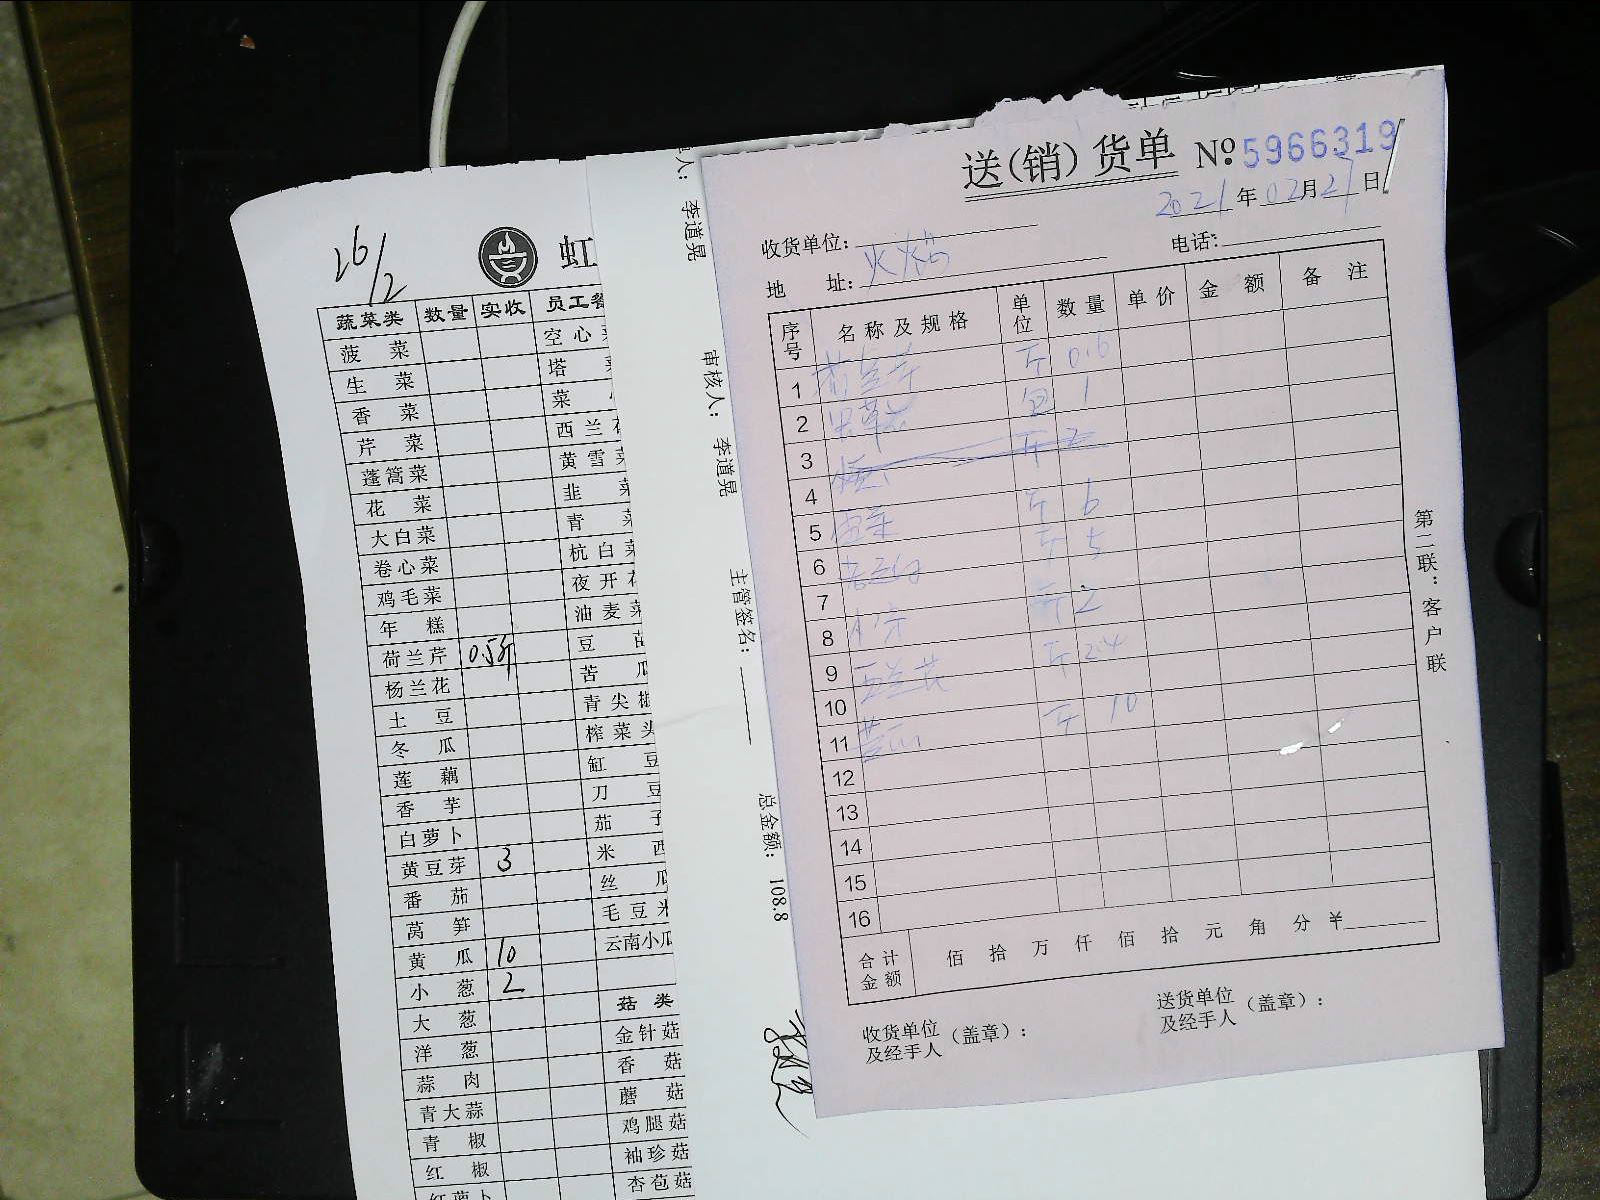 26/2
虹
蔬菜类 数量 实收 员工餐
菠菜 空心
生菜 塔
香菜 菜
芹菜 西兰花
蓬篙菜 黄雪菜
花菜 韭菜
大白菜 青菜
卷心菜 杭白菜
鸡毛菜 夜开花
年糕 油麦菜
荷兰芹 0.5斤 豆苗
杨兰花 苦瓜
土豆 青尖椒
冬瓜 榨菜头
莲藕 缸豆
香芋 刀豆
白萝卜 茄子
黄豆芽 3 米西
番茄 丝瓜
莴笋 毛豆米
黄瓜 10 云南小瓜
小葱 2
大葱 菇类
洋葱 金针菇
蒜肉 香菇
青大蒜 蘑菇
青椒 鸡腿菇
红椒 袖珍菇
红萝卜 杏苞菇
人: 李道晃
审核人: 李道晃
主管签名:
总金额: 108.8
送(销)货单 №:5966319
2021年02月27日
收货单位:
电话:
地 址: 火焰
序号 名称及规格 单位 数量 单价 金额 备注
1 斤 0.6
2 包 1
3 斤 2
4
5 斤 6
6 斤 5
7 斤 2
8
9 西兰花 斤 2.4
10 斤 10
11 黄瓜
12
13
14
15
16
合计金额 佰 拾 万 仟 佰 拾 元 角 分 ¥
收货单位及经手人(盖章):
送货单位及经手人(盖章):
第二联:客户联